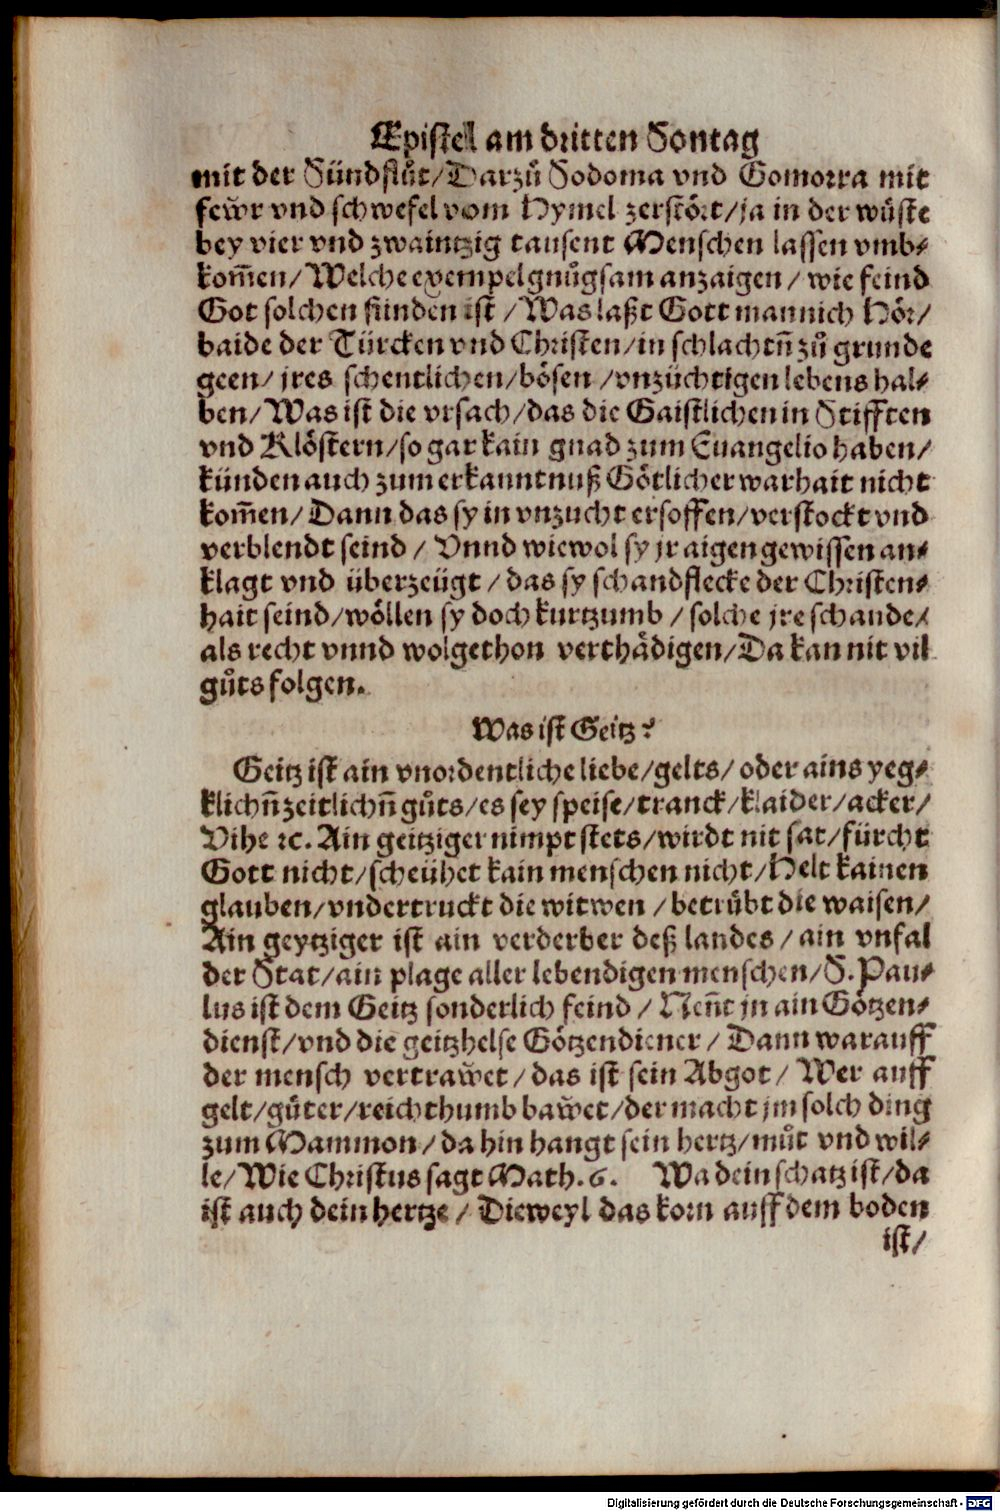 Epistel am dritten Sontag
mit der Sündflůt/Darzů Sodoma vnd Gomorra mit
feẘr vnd schwefel vom Hymel zerstört/ja in der wůste
bey vier vnd zwaintzig tausent Menschen lassen vmb-
kom̃en/Welche exempel gnůgsam anzaigen/ wie feind
Got solchen sünden ist /Was laßt Gott mannich Hör/
baide der Türcken vnd Christen/in schlachtñ zů grunde
geen/ jres schentlichen/bösen /vnzüchtigen lebens hal-
ben/Was ist die vrsach/das die Gaistlichen in Stifften
vnd Klöstern/so gar kain gnad zum Euangelio haben/
künden auch zum erkanntnuß Götlicher warhait nicht
kom̃en/Dann das sy in vnzucht ersoffen/verstockt vnd
verblendt seind / Vnnd wiewol sy jr aigen gewissen an-
klagt vnd überzeügt / das sy schandflecke der Christen-
hait seind/wöllen sy doch kurtzumb / solche jre schande/
als recht vnnd wolgethon verthädigen/Da kan nit vil
gůts folgen.
Was ist Geitz?
Geitz ist ain vnordentliche liebe/gelts/ oder ains yeg-
klichñ zeitlichñ gůts/es sey speise/tranck/klaider/acker/
Vihe ꝛc. Ain geitziger nimpt stets/wirdt nit sat/fürcht
Gott nicht/scheühet kain menschen nicht/Helt kainen
glauben/vndertruckt die witwen /betrübt die waisen/
Ain geytziger ist ain verderber deß landes / ain vnfal
der Stat/ain plage aller lebendigen menschen/S. Pau-
lus ist dem Geitz sonderlich feind / Neñt jn ain Götzen-
dienst/vnd die geitzhelse Götzendiener / Dann warauff
der mensch vertraẘet/das ist sein Abgot/ Wer auff
gelt/gůter/reichthumb baẘet/der macht jm solch ding
zum Mammon/da hin hangt sein hertz/můt vnd wil-
le/Wie Christus sagt Math.6. Wa dein schatz ist/da
ist auch dein hertze / Dieweyl das korn auff dem boden
ist/
Digitalisierung gefördert durch die Deutsche Forschungsgemeinschaft - DFG